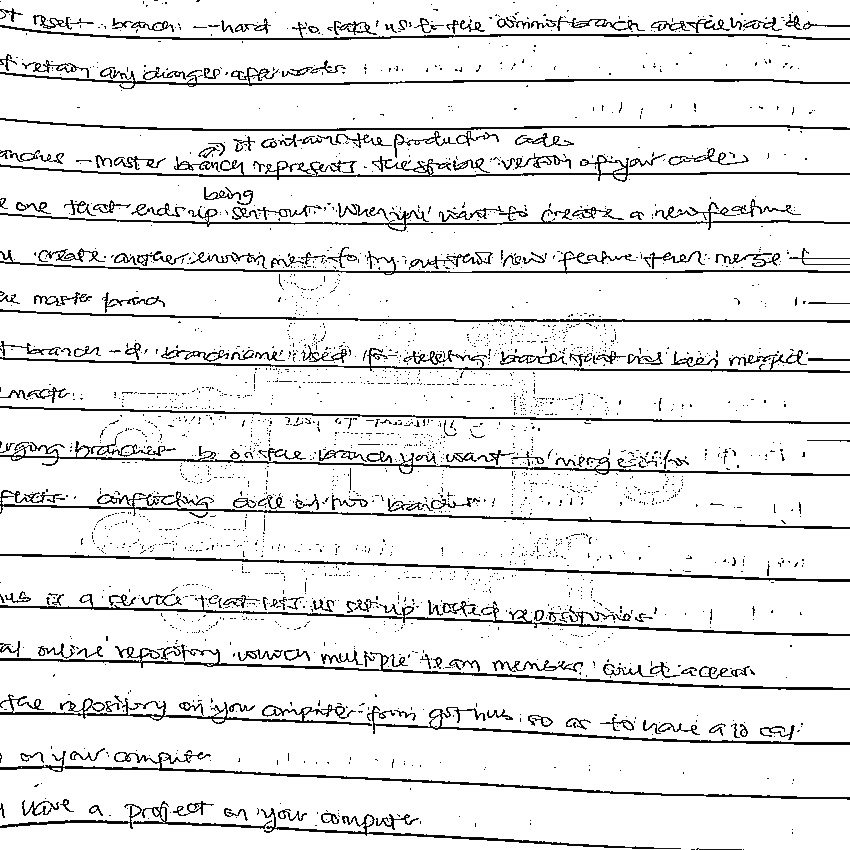 reset branch: --hard to take us to the commit branch and the hard do
retain any changes afterwards.
It contains the production code
-master branch represents the stable version of your code
being
one that ends up sent out. When you want to create a new feature
create another environment to try out this new feature then merge
master branch
branch -d branchname used for deleting branch that has been merged
branches be on the branch you want to merge
conflicting code on two branches
hub is a service that lets us set up hosted repositories
online repository which multiple team members could access
the repository on your computer from github so as to have a local
on your computer
have a project on your computer